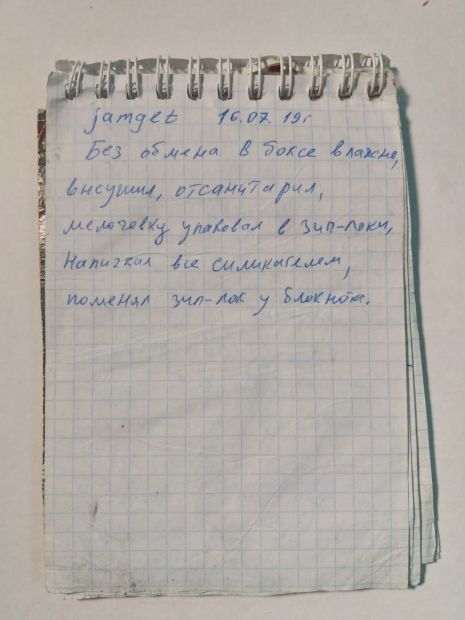 jamget 16.07.19г
Без обмена. В боксе влажно,
высушил, отсанитарил,
мелочевку упаковал в зип-локи,
Напичкал все силикагелем,
поменял зип-лок у блокнота.